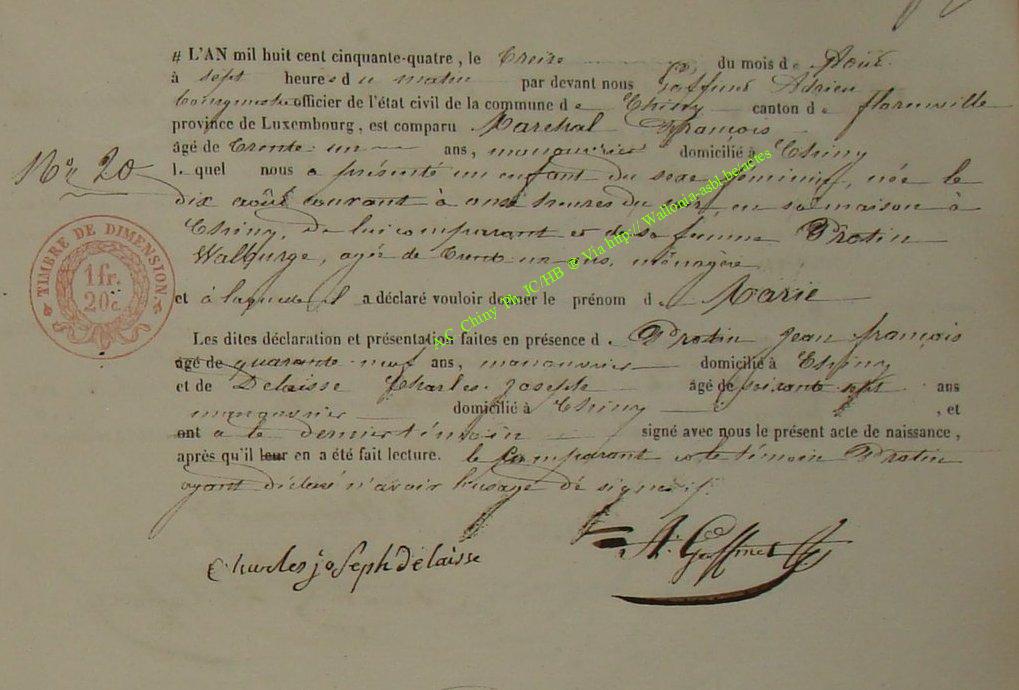 # L'AN mil huit cent cinquante-quatre, le treize du mois de Août
à sept heures du matin par devant nous Goffinet Adrien
bourgmestre officier de l'état civil de la commune de Chiny canton de florenville
province de Luxembourg, est comparu Marechal François
âgé de trente un ans, manouvrier domicilié à Chiny
lequel nous a présenté un enfant du sexe féminin, née le
No 20
dix août courant à onze heures du soir, en sa maison à
Chiny, de lui comparant et de sa femme Protin
Walburge, agée de trente un ans, ménagère
et à laquelle il a déclaré vouloir donner le prénom de Marie
Les dites déclaration et présentation faites en présence de Protin Jean françois
âgé de quarante neuf ans, manouvrier domicilié à Chiny
et de Delaisse Charles Joseph âgé de soixante sept ans
manouvrier domicilié à Chiny , et
ont a le dernier témoin signé avec nous le présent acte de naissance,
après qu'il leur en a été fait lecture. le comparant et le témoin Protin
ayant déclaré n'avoir l'usage de signer
TIMBRE DE DIMENSION
1 fr.
20 c.
Charles joseph Delaisse
A. Goffinet
A.C. Chiny Ph JC/HB @ Via http://Wallonia-asbl.be/actes